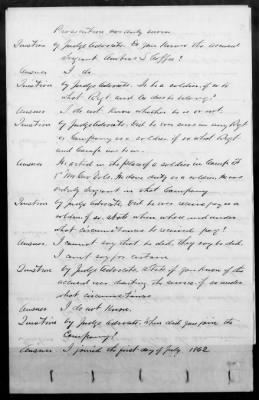 Prosecution was duly sworn
Question by Judge Advocate. Do you know the accused
Sergeant Ambrose L.
Answer I do.
Question by Judge Advocate. Is he a soldier, if so to
what Regt. and Co. does he belong?
Answer I do not know whether he is or not.
Question by Judge Advocate. Did he ever serve in any Regt
or Company as a soldier if so what Regt
and Comp
Answer He acted in the place of a soldier in Camp
Cav. Vols. He done duty as a soldier. He was
orderly sergeant in that Company
Question by Judge Advocate. Did he ever receive pay as a
soldier if so, state when where and under
what circumstances he received pay?
Answer. I cannot say that he did, they say he did.
I cant say for certain
Question by Judge Advocate. State if you know of the
accused ever the service if so under
what circumstances
Answer I do not know.
Question by Judge Advocate. When did you join the
Company?
Answer I joined the first day of July 1862